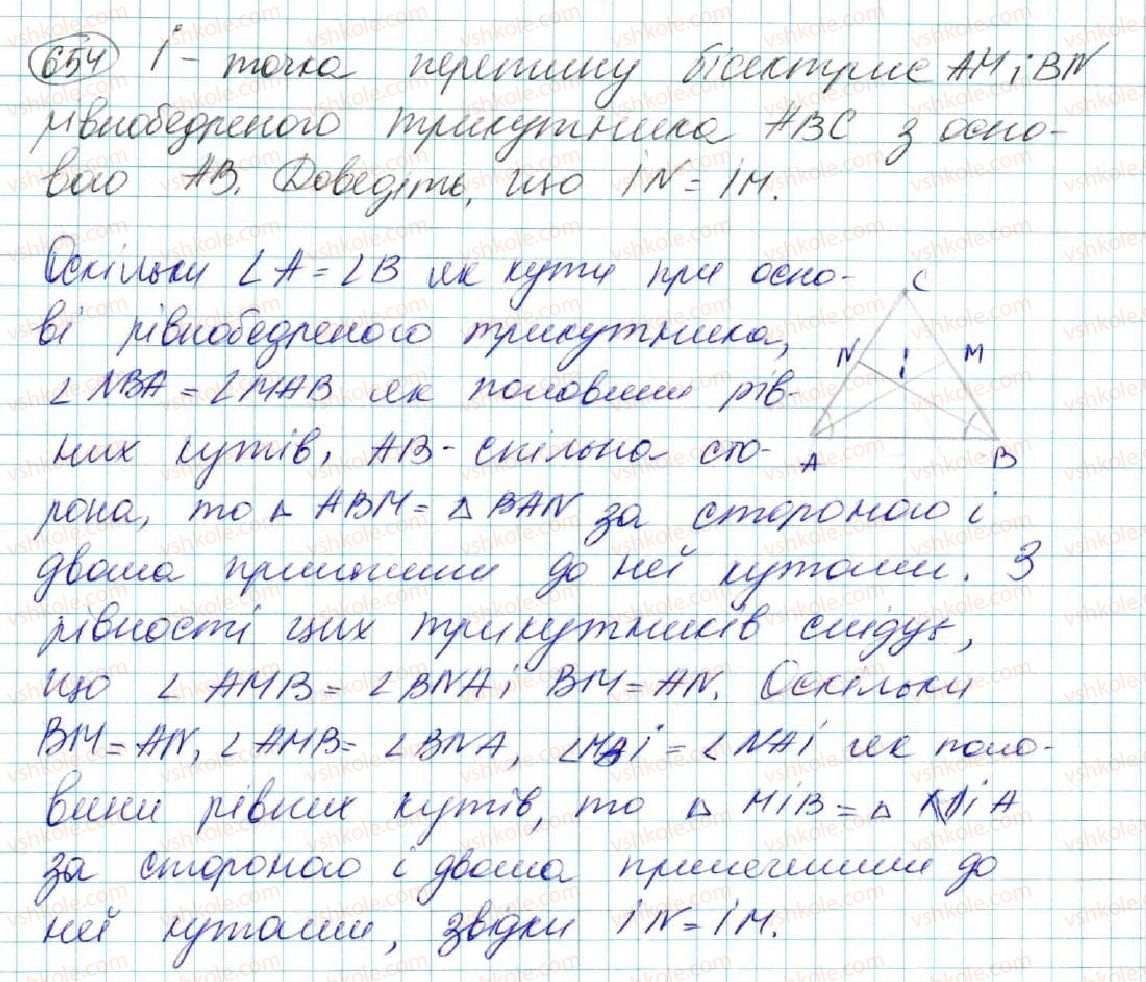 654 І - точка перетину бісектрис AM і BN
рівнобедреного трикутника ABC з осно-
вою AB. Доведіть, що IN = IM.
Оскільки ∠A = ∠B як кути при осно-
ві рівнобедреного трикутника,
∠NBA = ∠MAB як половини рів-
них кутів, AB - спільна сто-
рона, то ▵ ABM = ▵ BAN за стороною і
двома прилеглими до неї кутами. З
рівності цих трикутників слідує,
що ∠AMB = ∠BNA і BM = AN. Оскільки
BM = AN, ∠AMB = ∠BNA, ∠MBI = ∠NAI як поло-
вини рівних кутів, то ▵ MIB = ▵ NIA
за стороною і двома прилеглими до
неї кутами, звідки IN = IM.
C
N I M
A B
vshkole.com